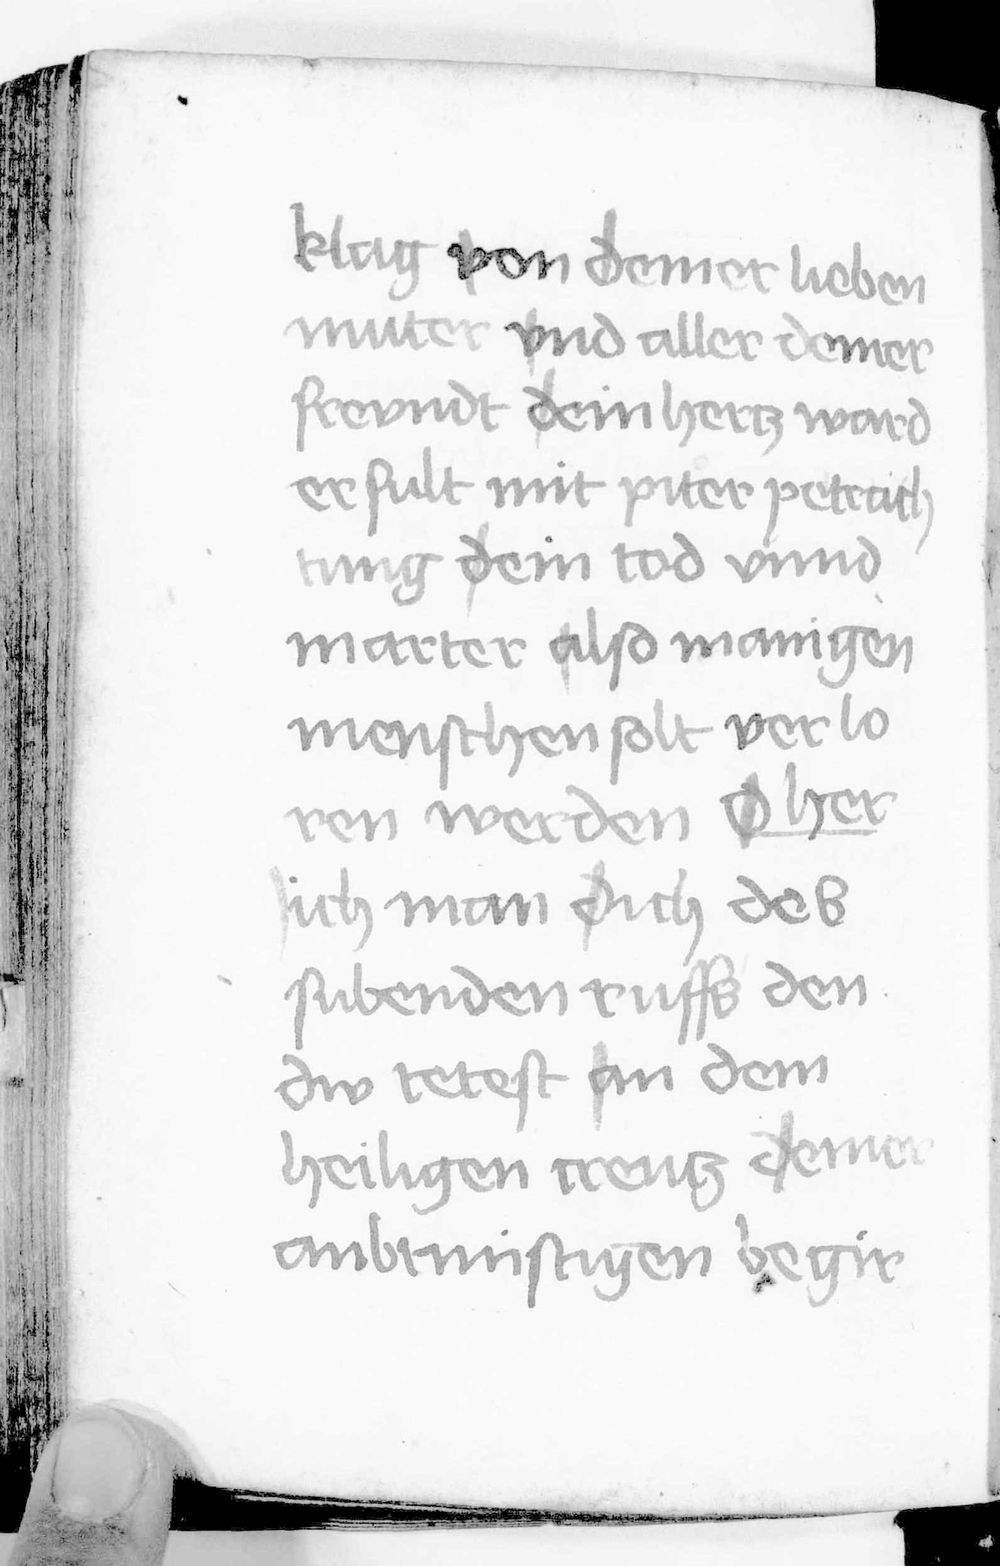 klag von deiner lieben
muter vnd aller deiner
frevndt dein hertz ward
erfult mit piter petrach
tung dein tod vnnd
marter also manigen
menschen solt verlo
ren werden O her
ich man dich deß
sibenden ruffß den
dw tetest an dem
heiligen creutz deiner
anbrunstigen begir